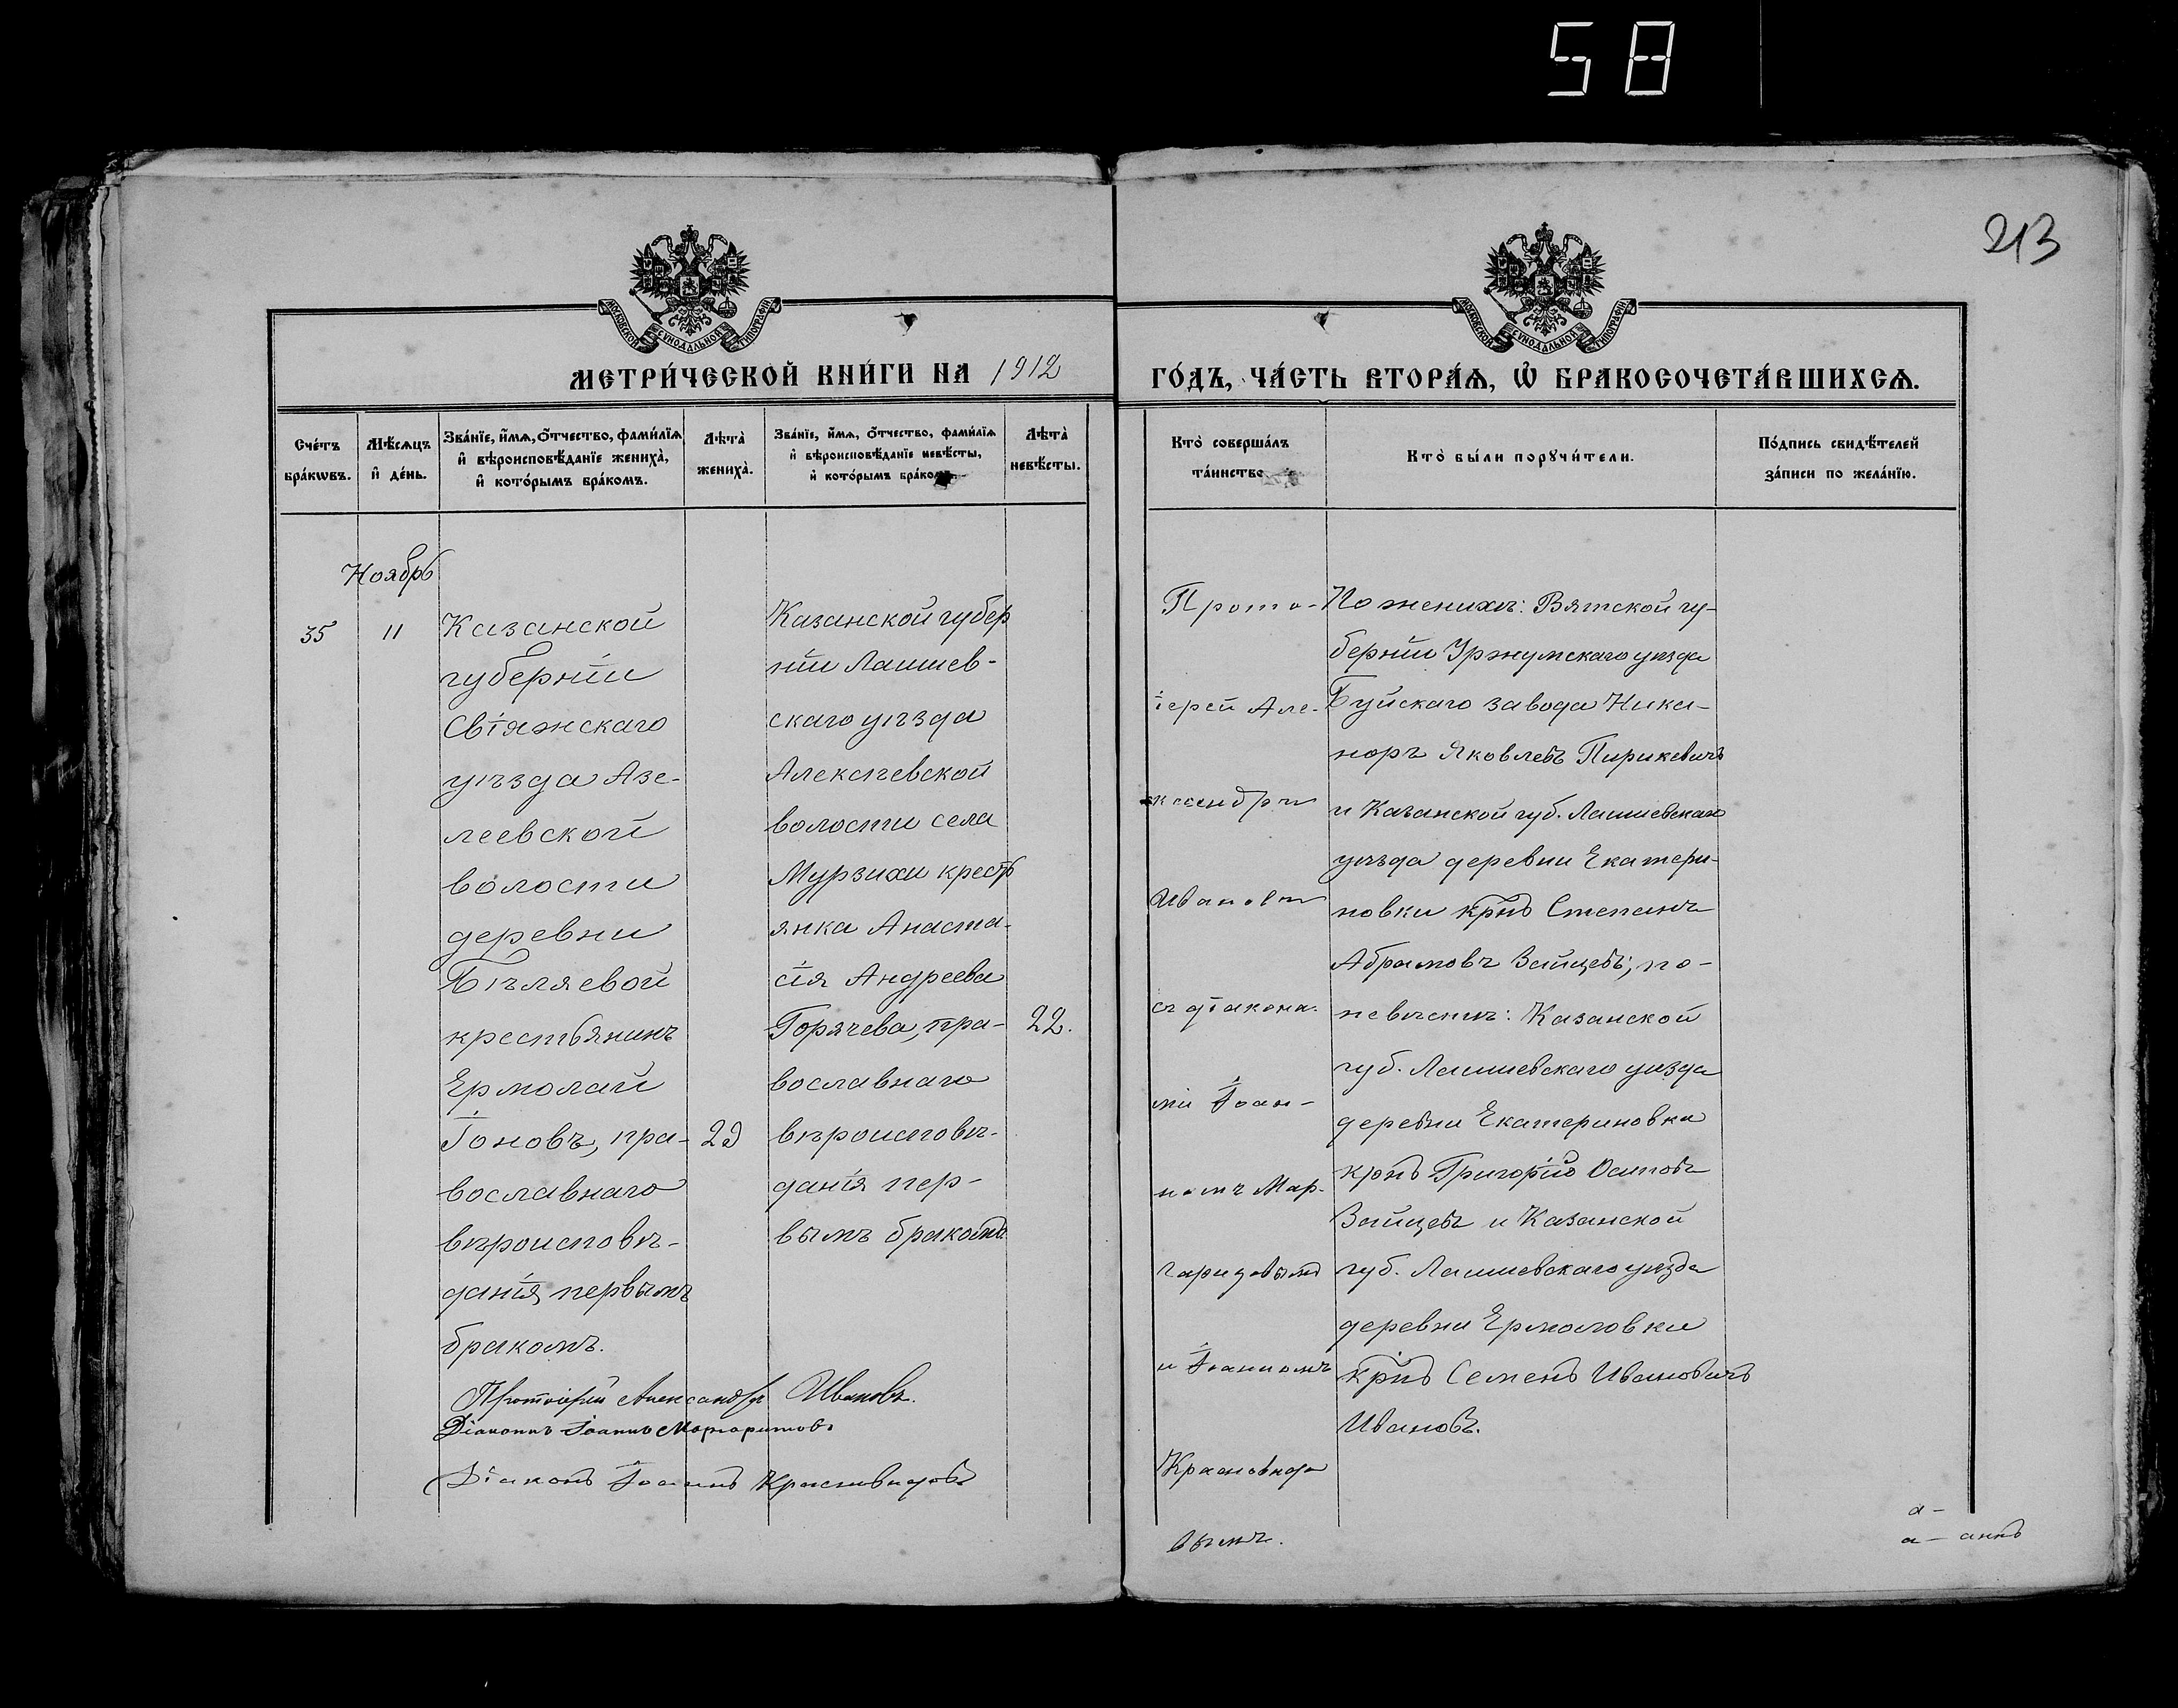 58
213
МОСКОВСКОЙ СѴНОДАЛЬНОЙ ТИПОГРАФІИ
МОСКОВСКОЙ СѴНОДАЛЬНОЙ ТИПОГРАФІИ
МЕТРИ́ЧЕСКОЙ КНИ́ГИ НА 1912
ГО́ДЪ, ЧА́СТЬ ВТОРА́Ѧ, Ѡ҆ БРАКОСОЧЕТА́ВШИХСѦ.
Сче́тъ
бра́кѡвъ.
Мѣ́сѧцъ
и҆ де́нь.
Зва́нїе, и҆́мѧ, ѻ҆́тчество, фами́лїѧ
и҆ вѣроисповѣ́данїе жениха̀,
и҆ кото́рымъ бра́комъ.
Лѣта̀
жениха̀.
Зва́нїе, и҆́мѧ, ѻ҆́тчество, фами́лїѧ
и҆ вѣроисповѣ́данїе невѣ́сты,
и҆ кото́рымъ бра́комъ.
Лѣта̀
невѣ́сты.
Кто̀ соверша́лъ
та́инство
Кто̀ бы́ли порꙋчи́тели.
По́дпись свидѣ́телей
за́писи по жела́нїю.
Ноябрь
35
11
Казанской
губерніи
Свіяжскаго
уѣзда Азе-
леевской
волости
деревни
Бѣляевой
крестьянинъ
Ермолай
Іоновъ, пра-
вославнаго
вѣроисповѣ-
данія, первымъ
бракомъ.
22
Казанской губер
ніи Лаишев-
скаго уѣзда
Алексѣевской
волости села
Мурзихи кресть
янка Анаста-
сія Андреева
Горячева, пра-
вославнаго
вѣроисповѣ-
данія пер-
вымъ бракомъ
22.
Протоіерей Александръ Ивановъ.
Діаконъ Іоаннъ Маргаритовъ
Діаконъ Іоаннъ Красновидовъ
Прото-
іерей Але-
ксандръ
Ивановъ
съ діакона-
ми Іоан-
номъ Мар-
гаритовымъ
и Іоанномъ
Краснови­до
вымъ.
По женихѣ: Вятской гу-
берніи Уржумскаго уѣзда
Буйскаго завода Ника-
норъ Яковлевъ Пирикевичъ
и Казанской губ. Лаишевскаго
уѣзда деревни Екатери-
новки крнъ Степанъ
Абрамовъ Зайцевъ; по-
невѣстѣ: Казанской
губ. Лаишевскаго уѣзда
деревни Екатериновки
крнъ Григорій Осиповъ
Зайцевъ и Казанской
губ. Лаишевскаго уѣзда
деревни Ермоловки
крнъ Семенъ Ивановичъ
Ивановъ.
а -
а - аннъ